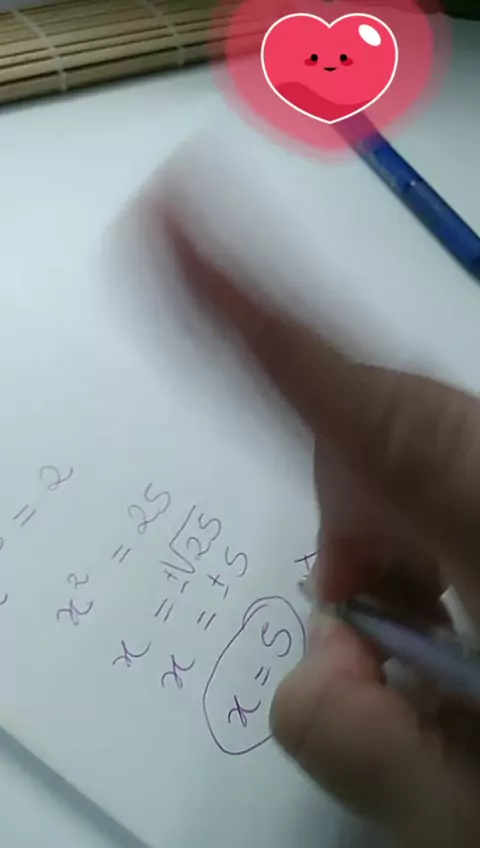 = 2
x² = 25
x = ±√25
x = ±5
x = 5
x